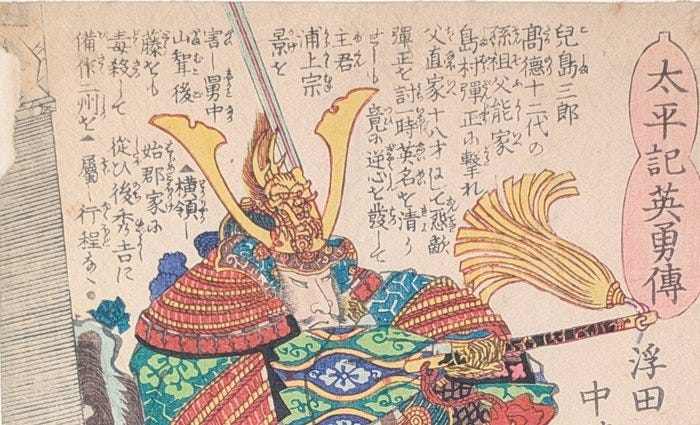 太平記英勇傳
浮田
中
兒島三郎
高德十二代の
孫祖父能家
島村彈正に撃れ
父直家十八才にして悲敵
彈正を討時英名を清う
せしも竟に逆心を發して
主君
浦上宗
景を
害し舅中
山聟後
藤をも
毒殺して
備作二州を
横領し
始郡家に
從ひ後秀吉に
屬し行程なく